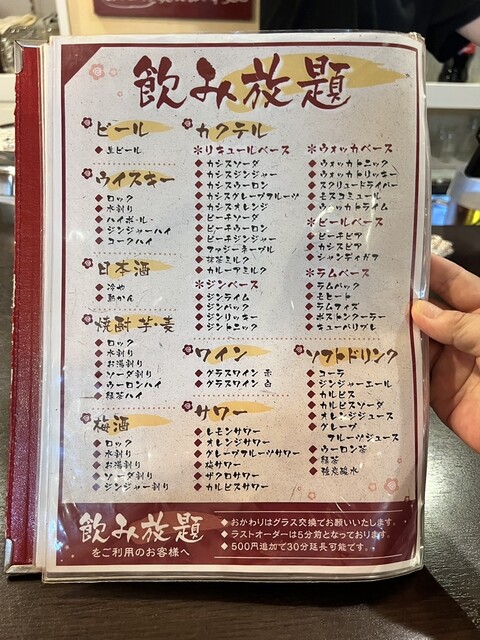 飲み放題
ビール
生ビール
ウイスキー
ロック
水割り
ハイボール
ジンジャーハイ
コークハイ
日本酒
冷や
熱かん
焼酎 芋・麦
ロック
水割り
お湯割り
ソーダ割り
ウーロンハイ
緑茶ハイ
梅酒
ロック
水割り
お湯割り
ソーダ割り
ジンジャー割り
カクテル
*リキュールベース
カシスソーダ
カシスジンジャー
カシスウーロン
カシスグレープフルーツ
カシスオレンジ
ピーチソーダ
ピーチウーロン
ピーチジンジャー
ファジーネーブル
抹茶ミルク
カルーアミルク
*ジンベース
ジンライム
ジンバック
ジンリッキー
ジントニック
*ウォッカベース
ウォッカトニック
ウォッカリッキー
スクリュードライバー
モスコミュール
ウォッカライム
*ビールベース
ピーチビア
カシスビア
シャンディガフ
*ラムベース
ラムバック
モヒート
ラムライム
ボストンクーラー
キューバリブレ
ワイン
グラスワイン 赤
グラスワイン 白
サワー
レモンサワー
オレンジサワー
グレープフルーツサワー
梅サワー
ザクロサワー
カルピスサワー
ソフトドリンク
コーラ
ジンジャーエール
カルピス
カルピスソーダ
オレンジジュース
グレープ
フルーツジュース
ウーロン茶
緑茶
強炭酸水
飲み放題
をご利用のお客様へ
おかわりはグラス交換でお願いいたします。
ラストオーダーは5分前となっております。
500円追加で30分延長可能です。